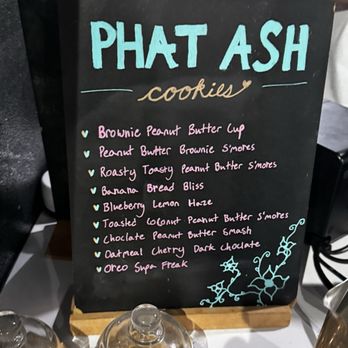 PHAT ASH
cookies
Brownie Peanut Butter Cup
Peanut Butter Brownie S'mores
Roasty Toasty Peanut Butter S'mores
Banana Bread Bliss
Blueberry Lemon Haze
Toasted Coconut Peanut Butter S'mores
Choclate Peanut Butter Smash
Oatmeal Cherry Dark Choclate
Oreo Supa Freak